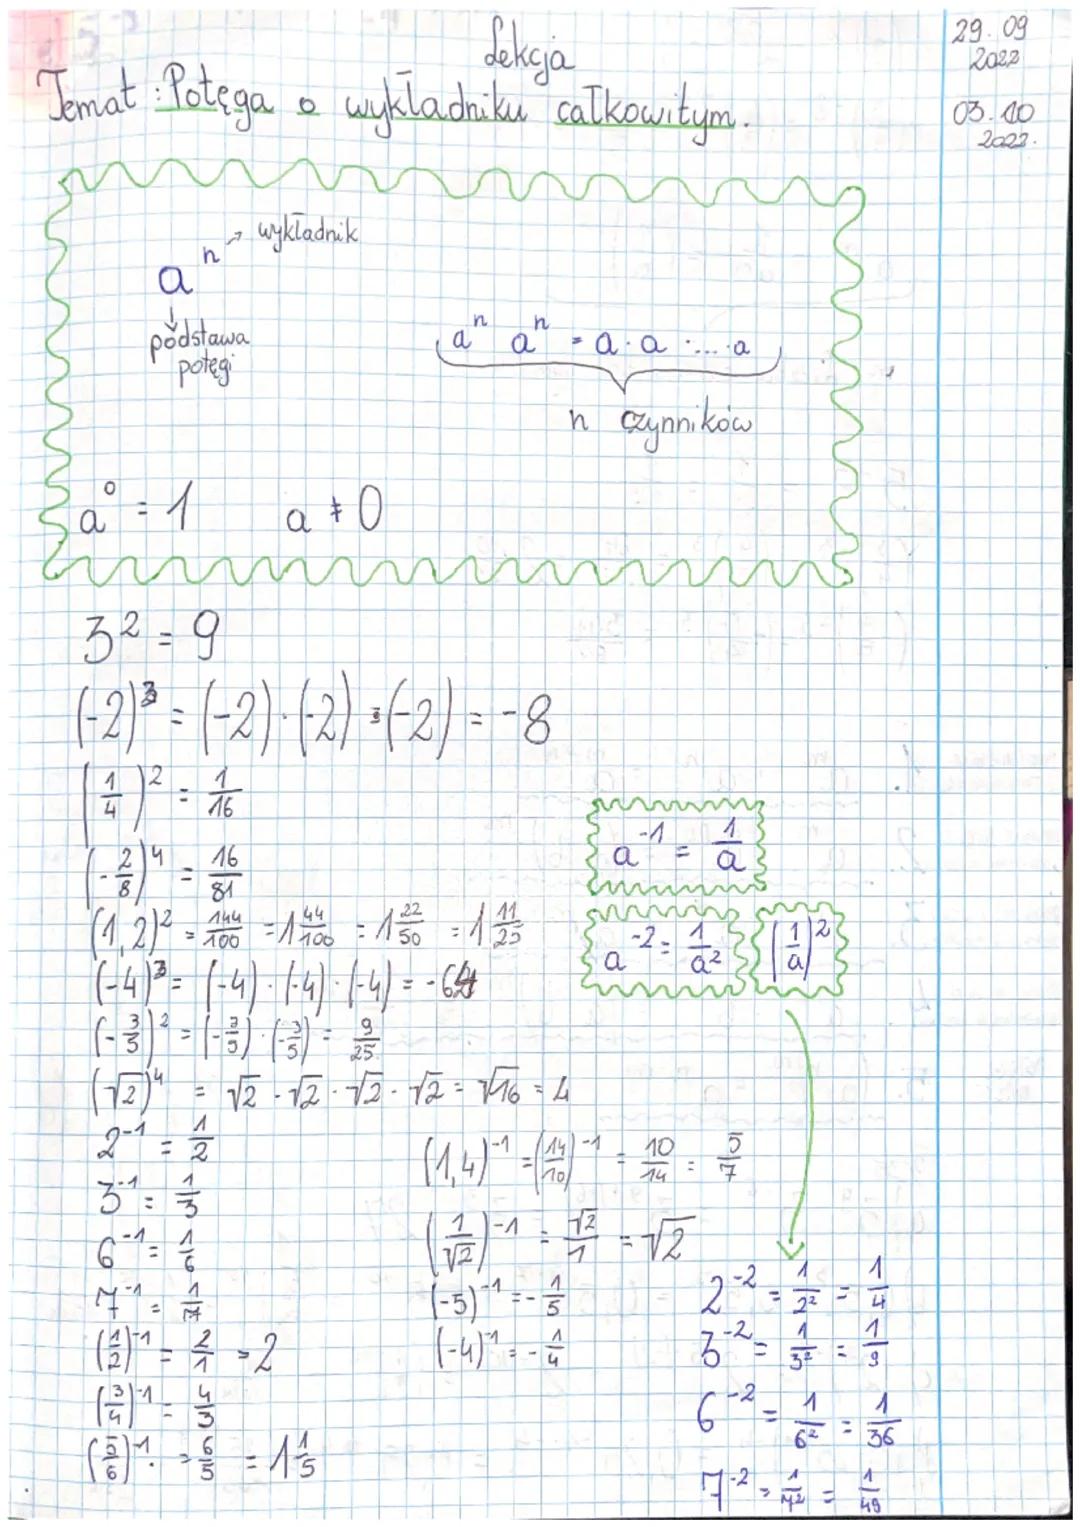 Lekcja
29.09
2022
Temat: Potęga o wykładniku całkowitym.
03.10
2022.
aⁿ → wykładnik
podstawa
potęgi
aⁿ aⁿ = a · a · ... · a
n czynników
a⁰ = 1 a ≠ 0
3² = 9
(-2)³ = (-2)·(-2)·(-2) = -8
(1/4)² = 1/16
(-2/8)⁴ = 16/81
(1,2)² = 144/100 = 1 44/100 = 1 22/50 = 1 11/25
(-4)³ = (-4)·(-4)·(-4) = -64
(-3/5)² = (-3/5)·(-3/5) = 9/25
(√2)⁴ = √2 · √2 · √2 · √2 = √16 = 4
2⁻¹ = 1/2
3⁻¹ = 1/3
6⁻¹ = 1/6
7⁻¹ = 1/7
(1/2)⁻¹ = 2/1 = 2
(3/4)⁻¹ = 4/3
(5/6)⁻¹ = 6/5 = 1 1/5
a⁻¹ = 1/a
a⁻² = 1/a² (1/a)²
(1,4)⁻¹ = (14/10)⁻¹ = 10/14 = 5/7
(1/√2)⁻¹ = √2/1 = √2
(-5)⁻¹ = -1/5
(-4)⁻¹ = -1/4
2⁻² = 1/2² = 1/4
3⁻² = 1/3² = 1/9
6⁻² = 1/6² = 1/36
7⁻² = 1/7² = 1/49